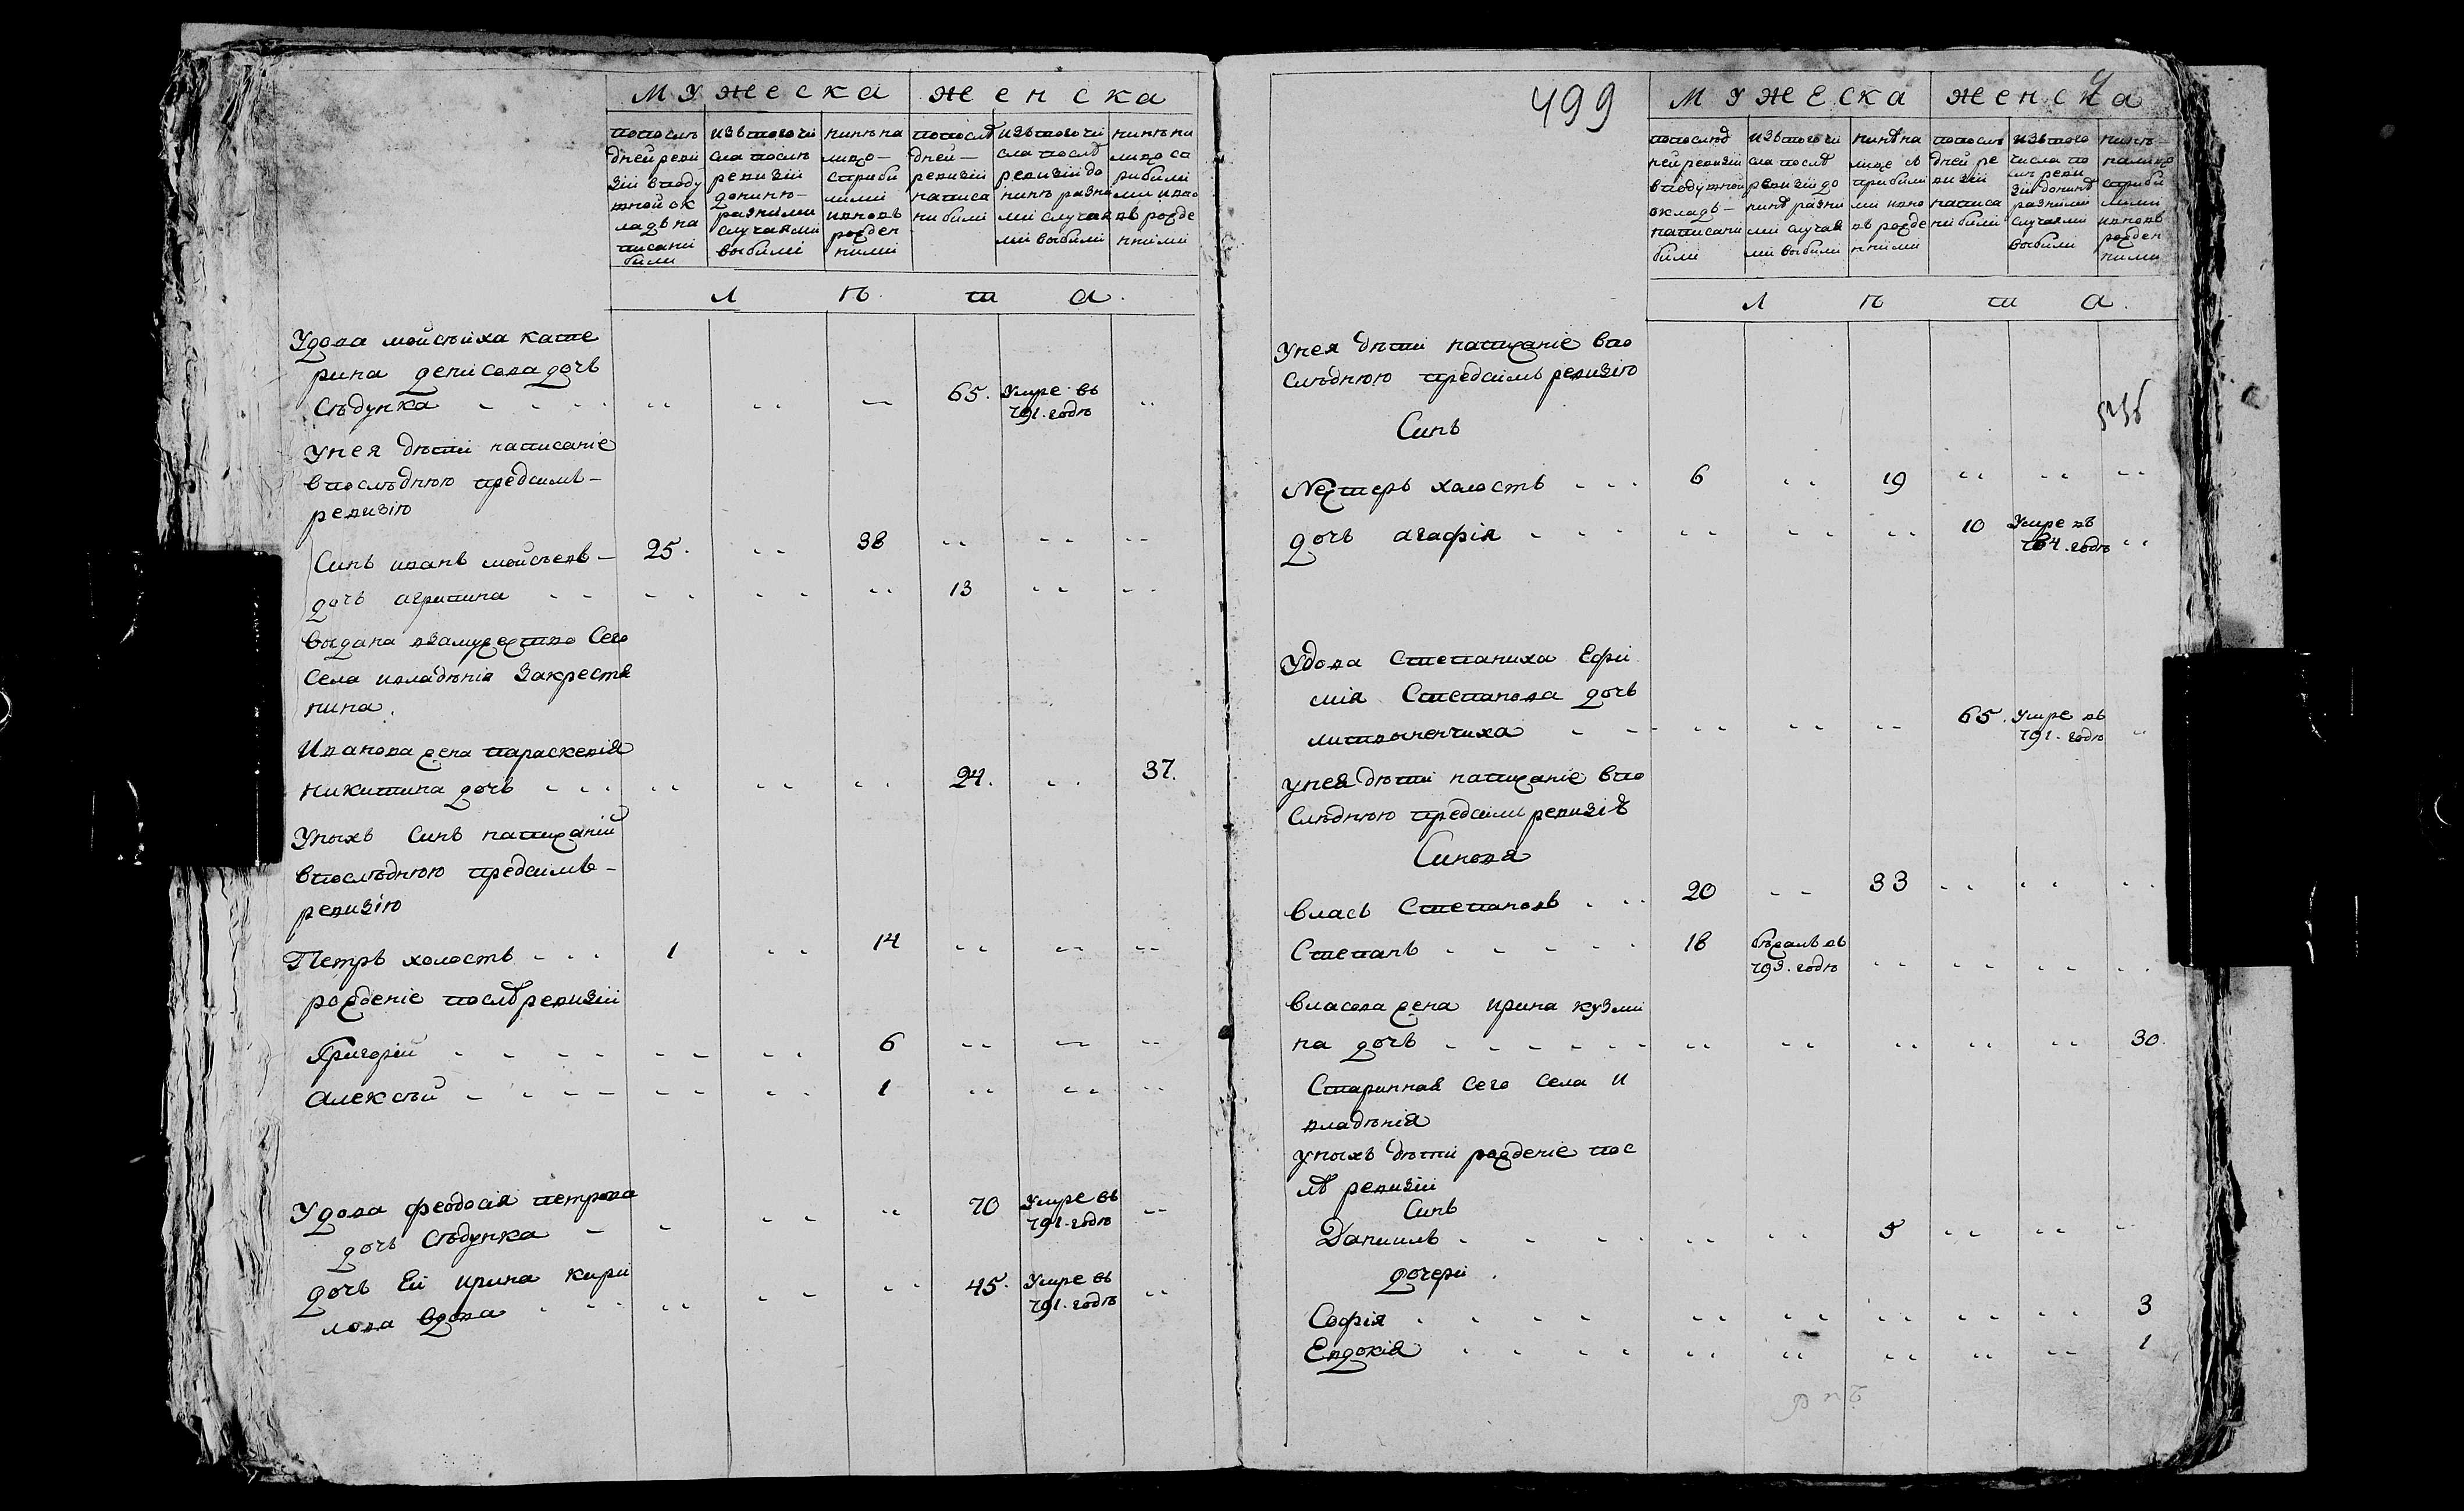 МУЖеска Женска
попослѣ дней ревизіи вподу шной ок ладѣ на писани били
изътого чи сла послѣ ревизіи донинѣ разними случаями выбили
нинѣ на лицо сприбилими ивновь рожден ними
попослѣ дней ревизіи написа ни били
изътого чи сла послѣ ревизіи до нинѣ разни ми случая ми выбили
нинѣ на лицо сп рибили ми ивно вь рожде нними
Л Ѣ т а.
Удова мойсѣиха кате
рина денисова дочь
Сѣдунка 65. Умре въ
791. годѣ
Унея дѣти написаніе
впослѣднюю предсимъ
ревизію
Синъ иванъ мойсѣевъ 25. 38
дочь агрипина 13
выдана взамужество Сего
Села ивладѣнія Закрестя
нина.
Иванова жена параскевія
никитина дочь 24. 37.
Унихъ Синъ написаній
впослѣднюю предсимъ
ревизію
Петръ холостъ 1 14
рожденіе послѣ ревизіи
Григорій 6
алексѣй 1
Удова феодосія петрова
дочь Сѣдунка 70 Умре въ
791. годѣ
дочь Еи ирина кири
лова вдова 45. Умре въ
791. годѣ
499
МУЖЕска женска
попослѣд ней ревизіи вподушной окладѣ написани били
изътого чи сла послѣ ревизіи до нинѣ разни ми случая ми выбили
нинѣ на лице съ прибили ми ивно вь рожде нними
попослѣ дней ре визіи написа ни били
изътого числа по слѣ реви зіи донинѣ разними случаями выбили
нинѣ налицо сприби лими ивновь рожден ними
Л Ѣ т а.
Унея дѣти написаніе впо
слѣднюю предсимъ ревизію
Синъ
Нестеръ холостъ 6 19
дочь агафія 10 Умре въ
годѣ
Удова Степаниха Ефи
мія Степанова дочь
литвиненчиха 65. Умре въ
791. годѣ
унея дѣти написаніе впо
слѣднюю предсими ревизіѣ
Синовя
власъ Степановъ 20 33
Степанъ 18 бѣжалъ въ
793. годѣ
власова жена ирина кузми
на дочь 30.
Старинная Сего Села и
владѣнія
унихъ дѣти рожденіе пос
лѣ ревизіи
Синъ
Даниилъ 5
дочери
Софія 3
Евдокія 1